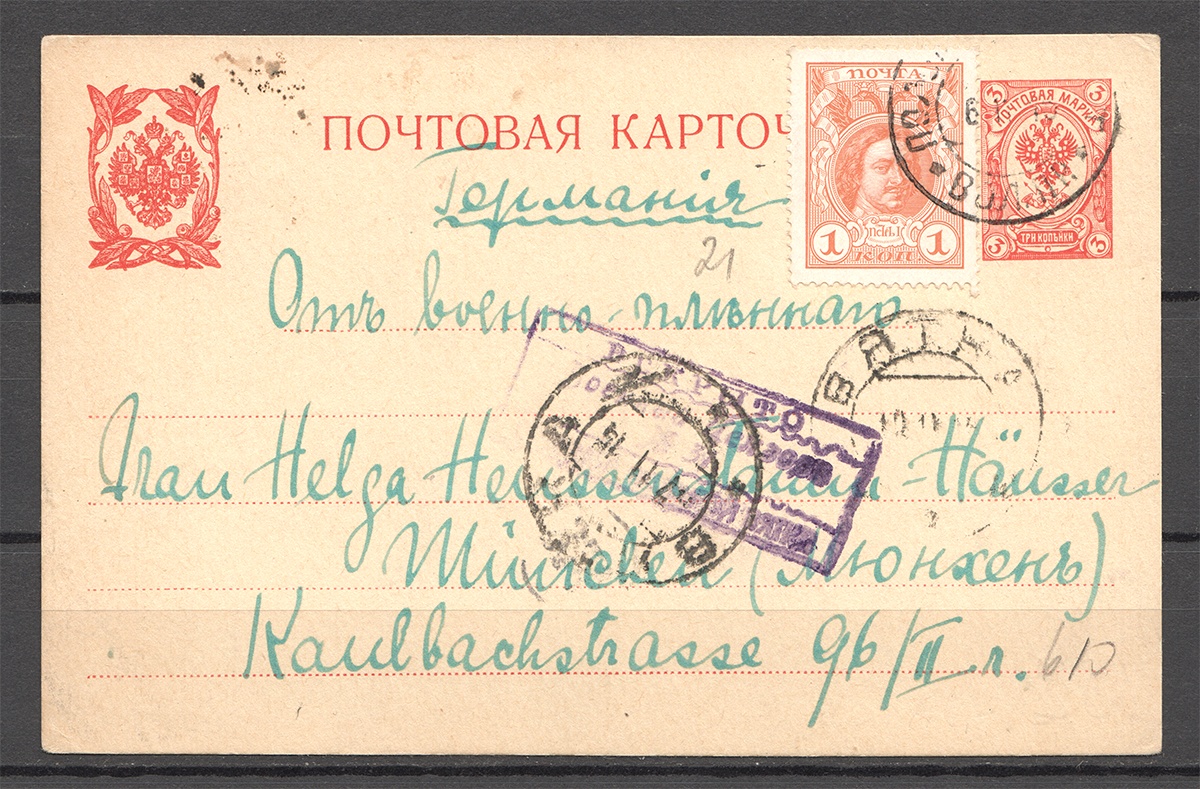 ПОЧТОВАЯ КАРТОЧ
ПОЧТА
ПЕТРЪ I
1 1
КОП.
3 3
ПОЧТОВАЯ МАРКА
ТРИ КОПѢЙКИ
3 3
Германія
21
Отъ военно-плѣннаго
ВЯТКА
ВСКРЫТО
КАЗАНЬ
Frau Helga Heussenstamm-Häusser
München (Мюнхенъ)
Kaulbachstrasse 96/II r.
610